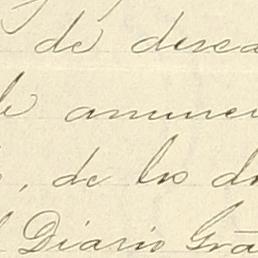 de desca
de anunci
, de los d
l Diario Grá